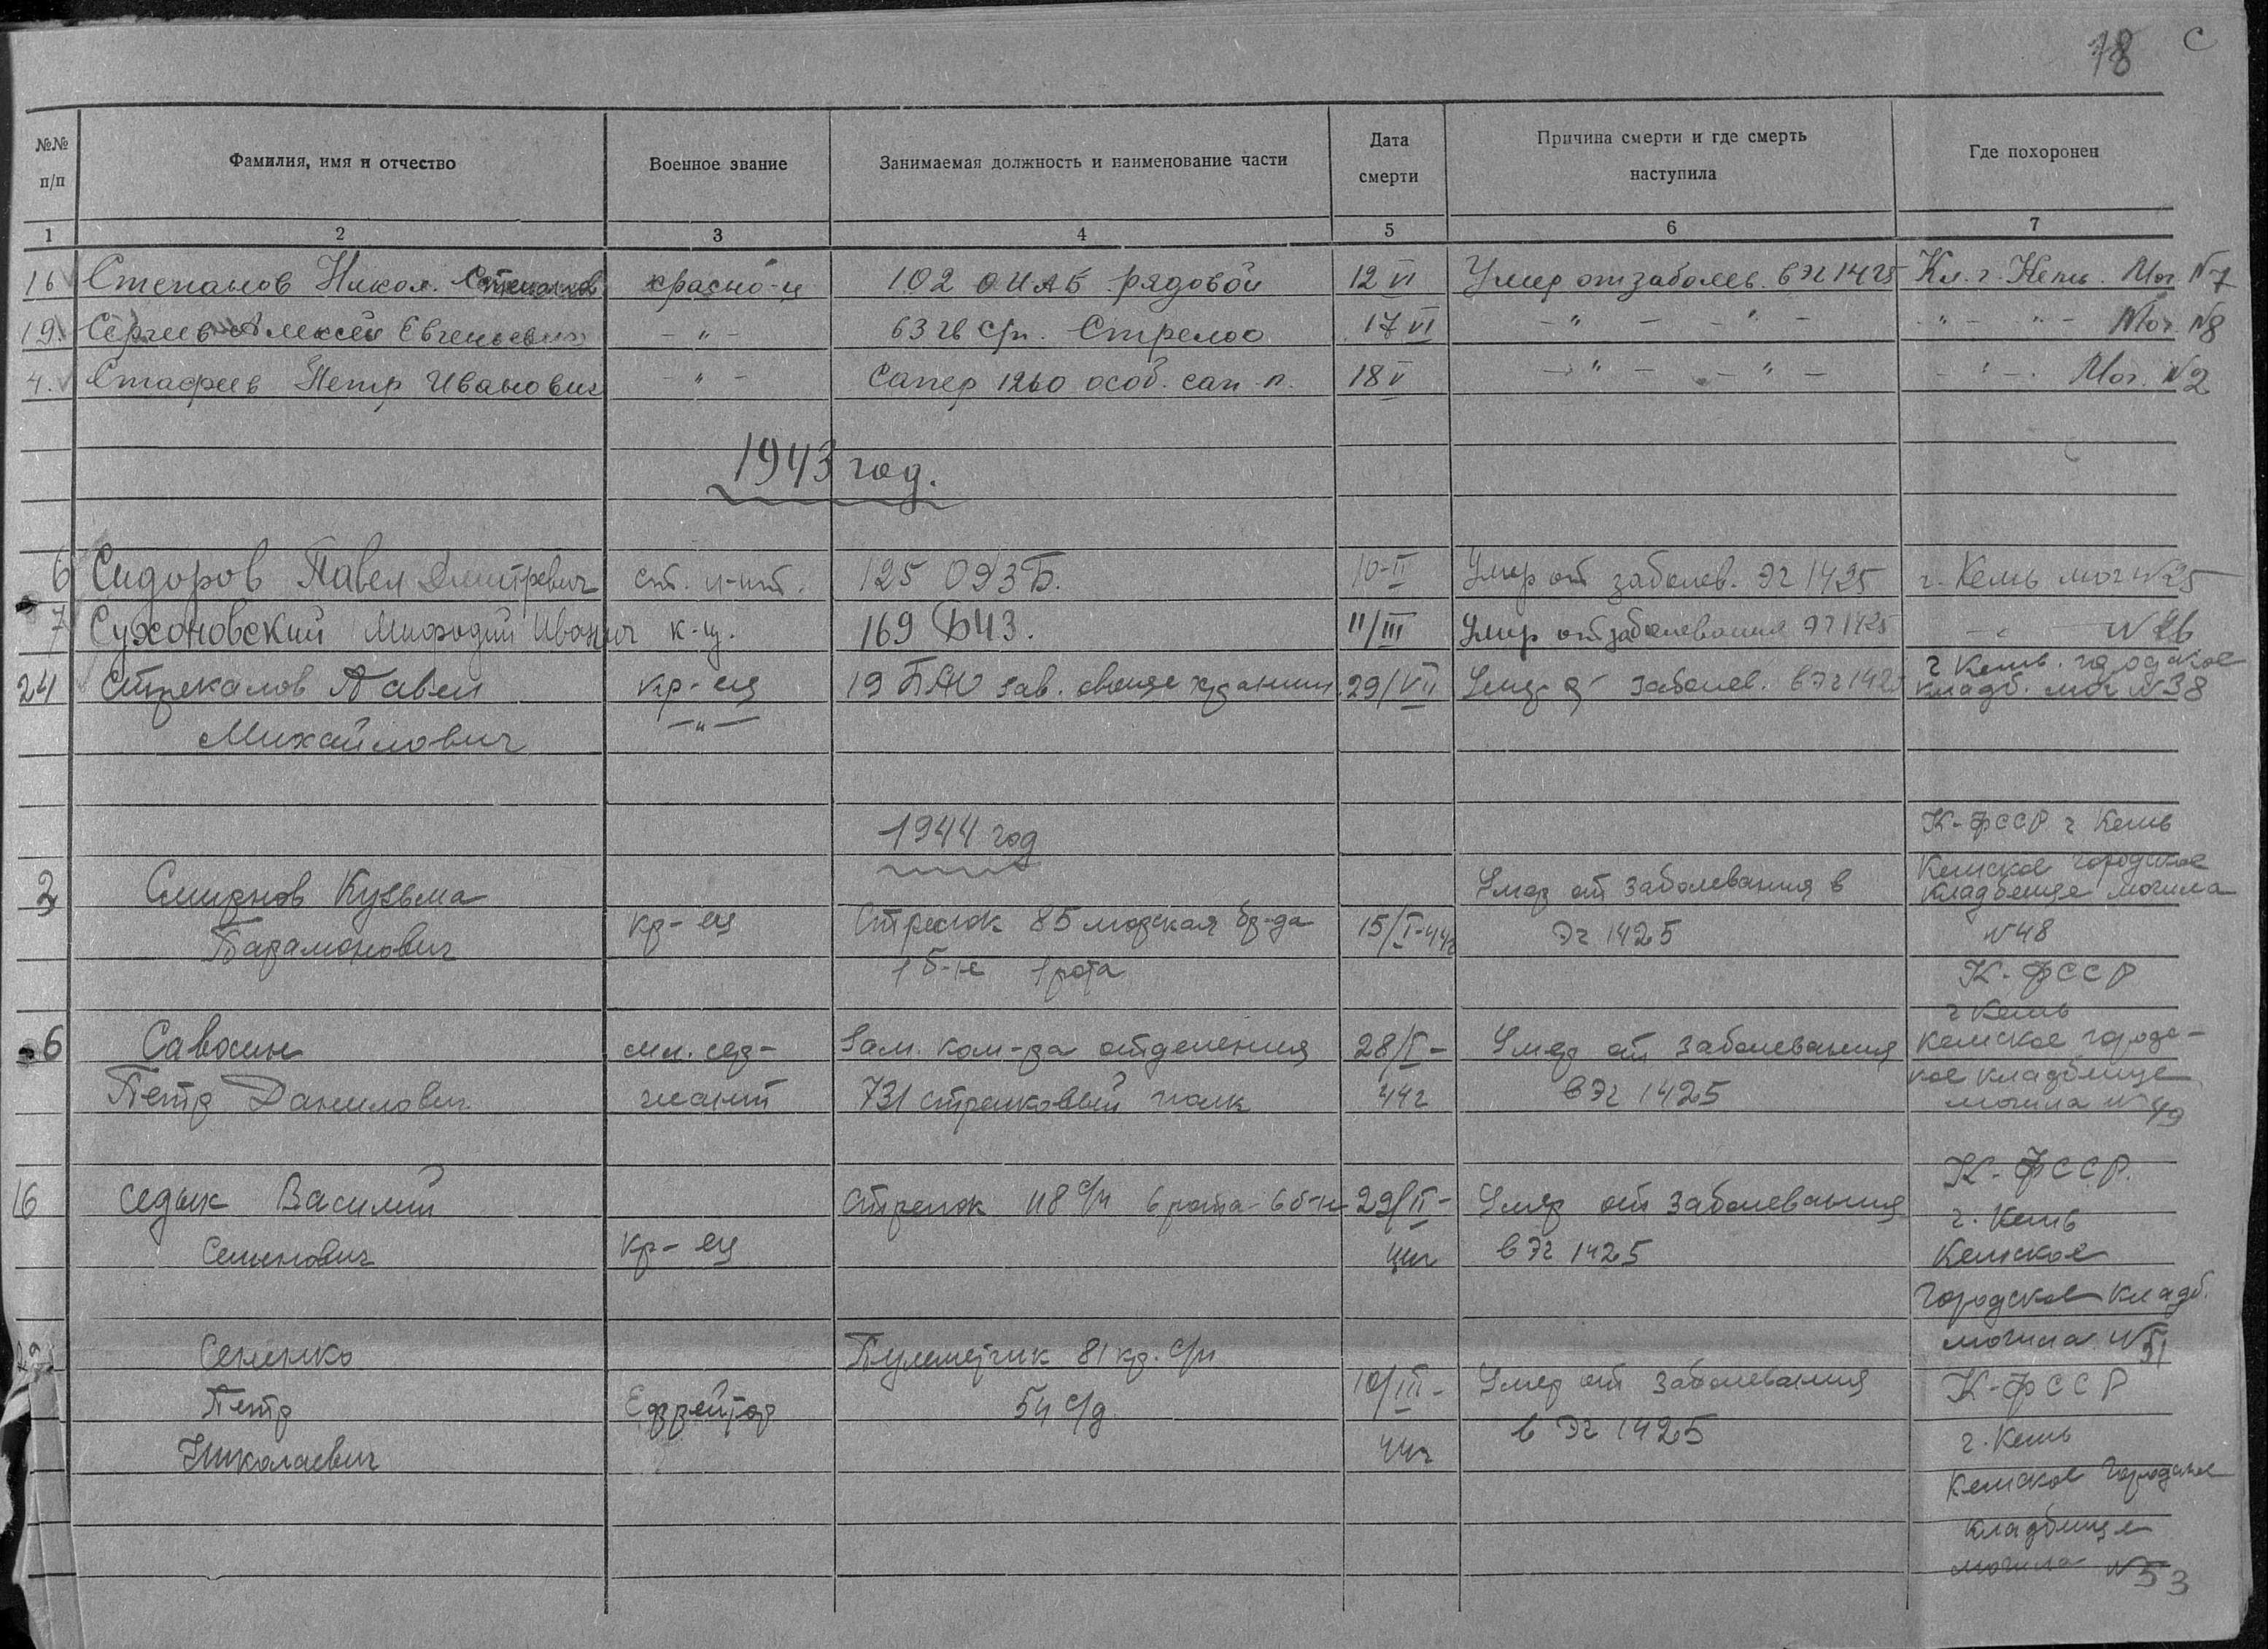 18 С
№№ п/п
Фамилия, имя и отчество
Военное звание
Занимаемая должность и наименование части
Дата смерти
Причина смерти и где смерть наступила
Где похоронен
1 2 3 4 5 6 7
16 Степанов Никол. Степанов. красно-ц 102 ОИАБ рядовой 12 VI Умер от заболев. в ЭГ 1425 Кл. г. Кемь. Мог. №7
19. Сергеев Алексей Евгеньевич -"- 63 гв с/п. Стрелок 17 VI -"- -"- -"- "- Мог. №8
4. Стафеев Петр Иванович -"- Сапер 1260 особ. сап. п. 18 V -"- -"- -"-. Мог. №2
1943 год.
6 Сидоров Павел Дмитревич ст. л-нт. 125 ОЭЗБ. 10-II Умер от заболев. Эг 1425 г. Кемь мог №25
7 Сухоновский Мифодий Иванович к-ц. 169 БЧЗ. 11/III Умер от заболевания ЭГ 1425 -"- №26
24 Стрекалов Павел кр-ец 19 БАО зав. овощехранили 29/VII Умер от заболев. в Эг 1425 г Кемь. городское
кладб. мог №38
Михайлович -"-
1944 год
К-ФССР г Кемь
2 Смирнов Кузьма Умер от заболевания в Кемское городское
кладбище могила
Парамонович кр-ец Стрелок 85 морская бр-да 15/I-44г Эг 1425 №48
1 б-н 1 рота
К-ФССР
г Кемь
6 Савосин мл. сер- Зам. ком-ра отделения 28/I- Умер от заболевания Кемское городс-
кое кладбище
Петр Данилович жант 731 стрелковый полк 44г в Эг 1425 могила №49
К-ФССР.
16 Седык Василий Стрелок 118 с/п 6 рота 6 б-н 29/II- Умер от заболевания г. Кемь
Семенович кр-ец 44г в Эг 1425 Кемское
Городское кладб.
могила №51
Сененко Пулеметчик 81 кр. с/п
10/III- Умер от заболевания К-ФССР
Петр Ефрейтор 54 с/д
в Эг 1425 г. Кемь
Николаевич 44г
Кемское Городское
кладбище
могила №53